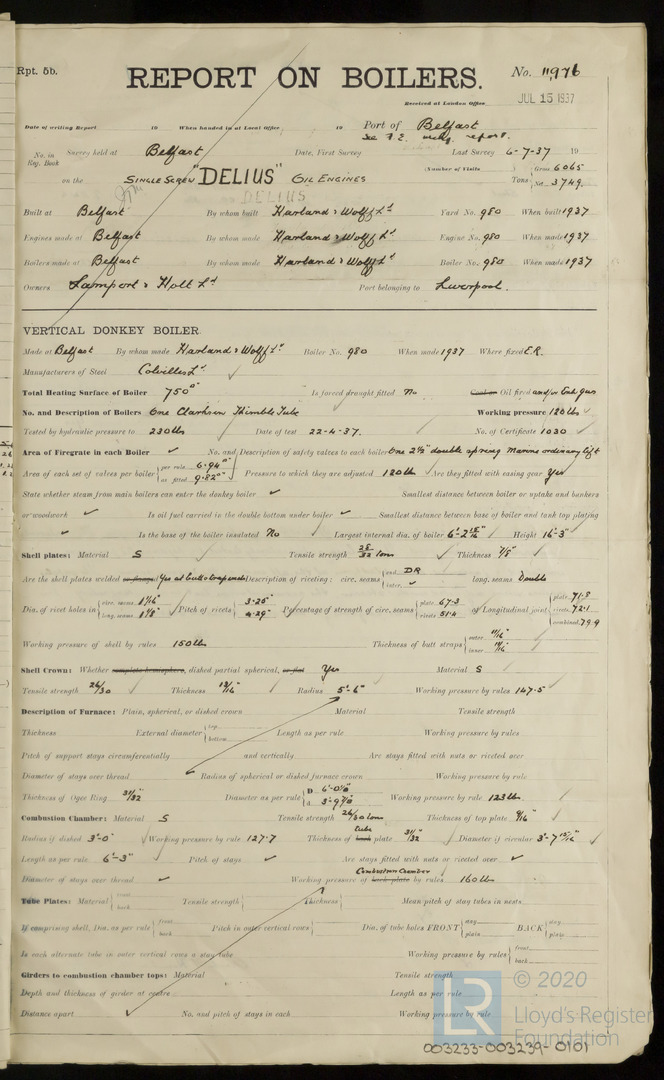 Rpt. 5b.
REPORT ON BOILERS.
No. 11976
Received at London Office
JUL 15 1937
Date of writing Report 19 When handed in at Local Office 19 Port of Belfast
See F.E. mchy. report.
No. in Reg. Book Survey held at Belfast Date, First Survey Last Survey 6-7-37 19
(Number of Visits
on the SINGLE SCREW "DELIUS" OIL ENGINES Tons Gross 6065 Net 3749
DELIUS
Built at Belfast By whom built Harland & Wolff Ld Yard No. 980 When built 1937
Engines made at Belfast By whom made Harland & Wolff Ld. Engine No. 980 When made 1937
Boilers made at Belfast By whom made Harland & Wolff Ld Boiler No. 980 When made 1937
Owners Lamport & Holt Ld Port belonging to Liverpool.
VERTICAL DONKEY BOILER.
Made at Belfast By whom made Harland & Wolff Ld. Boiler No. 980 When made 1937 Where fixed E.R.
Manufacturers of Steel Colvilles Ld. ✓
Total Heating Surface of Boiler 750 □" Is forced draught fitted No Coal or Oil fired and/or Exh gas
No. and Description of Boilers One Clarkson Thimble Tube Working pressure 120 lb ✓
Tested by hydraulic pressure to 230 lbs Date of test 22-4-37. No. of Certificate 1030 ✓
Area of Firegrate in each Boiler ✓ No. and Description of safety valves to each boiler One 2½" double spring Marine ordinary lift
Area of each set of valves per boiler per rule 6.94 □" as fitted 9.82 □" Pressure to which they are adjusted 120 lb ✓ Are they fitted with easing gear Yes
State whether steam from main boilers can enter the donkey boiler ✓ Smallest distance between boiler or uptake and bunkers
or woodwork ✓ Is oil fuel carried in the double bottom under boiler ✓ Smallest distance between base of boiler and tank top plating
✓ Is the base of the boiler insulated No Largest internal dia. of boiler 6'-2 15/16" Height 16'-3"
Shell plates: Material S ✓ Tensile strength 28/32 tons ✓ Thickness 7/8" ✓
Are the shell plates welded or flanged Yes at butt strap ends Description of riveting: circ. seams end DR inter. ✓ long. seams Double
Dia. of rivet holes in circ. seams 1 1/16" long. seams 1 1/8" Pitch of rivets 3.25" 4.29" Percentage of strength of circ. seams plate 67.3 rivets 51.4 of Longitudinal joint plate 71.8 rivets 72.1 combined 79.9
Working pressure of shell by rules 150 lb Thickness of butt straps outer 11/16" inner
Shell Crown: Whether complete hemisphere, dished partial spherical, or flat Yes Material S
Tensile strength 26/30 Thickness 13/16" Radius 5'-6" Working pressure by rules 147.5
Description of Furnace: Plain, spherical, or dished crown Material Tensile strength
Thickness External diameter top bottom Length as per rule Working pressure by rules
Pitch of support stays circumferentially and vertically Are stays fitted with nuts or riveted over
Diameter of stays over thread ✓ Radius of spherical or dished furnace crown Working pressure by rule
Thickness of Ogee Ring 31/32" Diameter as per rule D 6'-0 1/8" d 3'-9 7/8" Working pressure by rule 123 lb.
Combustion Chamber: Material S Tensile strength 26/30 tons Thickness of top plate 9/16"
Radius if dished 3'-0" ✓ Working pressure by rule 127.7 Thickness of tube back plate 31/32" ✓ Diameter if circular 3'-7 13/16" ✓
Length as per rule 6'-3" Pitch of stays ✓ Are stays fitted with nuts or riveted over ✓
Diameter of stays over thread ✓ Working pressure of Combustion Chamber back plate by rules 160 lb
Tube Plates: Material front back Tensile strength Thickness Mean pitch of stay tubes in nests
If comprising shell, Dia. as per rule front back Pitch in outer vertical rows Dia. of tube holes FRONT stay plain BACK stay plain
Is each alternate tube in outer vertical rows a stay tube Working pressure by rules front back
Girders to combustion chamber tops: Material Tensile strength
Depth and thickness of girder at centre Length as per rule
Distance apart ✓ No. and pitch of stays in each Working pressure by rule
LR © 2020
Lloyd's Register
Foundation
003233-003239-0101